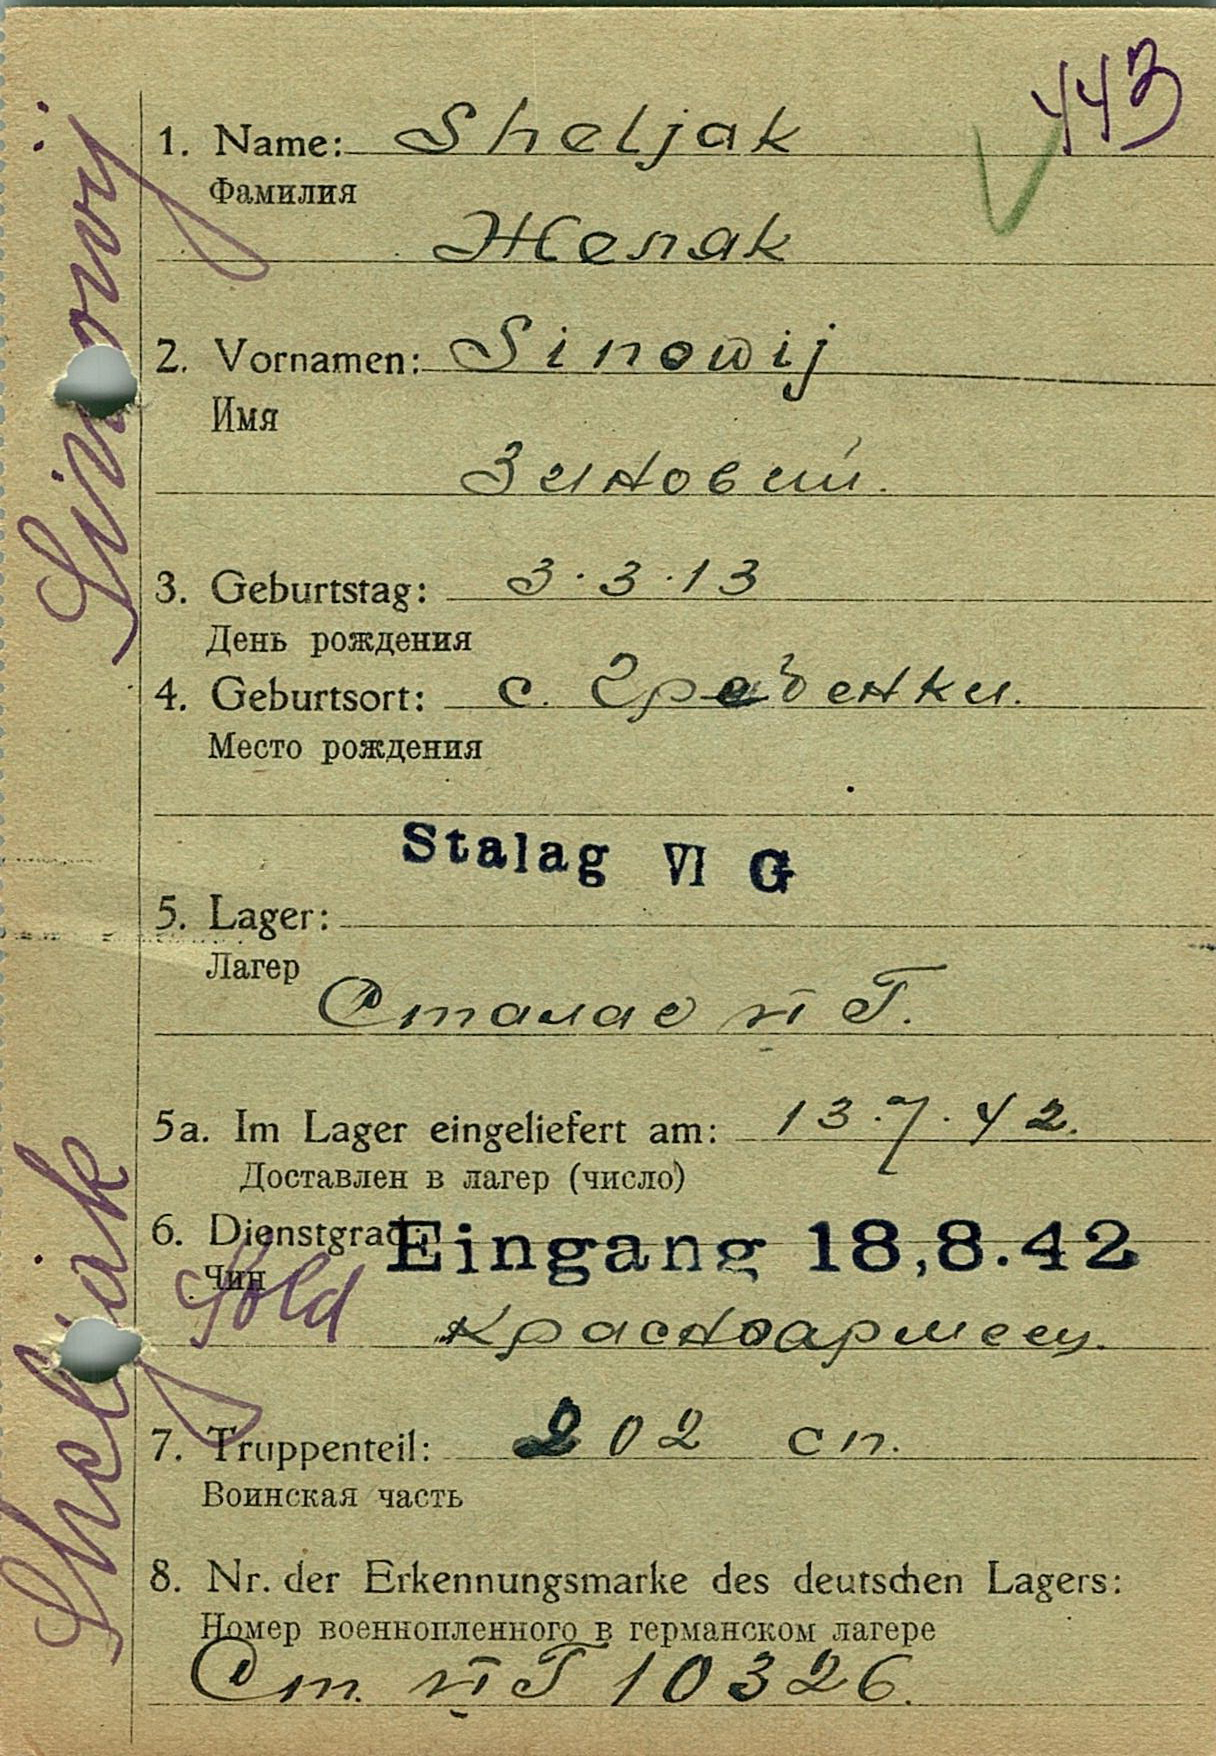 443
1. Name: Sheljak
Фамилия
Желяк
2. Vornamen: Sinowij
Имя
Зиновий.
3. Geburtstag: 3.3.13
День рождения
4. Geburtsort: с. Гребенки.
Место рождения
Stalag VI G
5. Lager:
Лагер
Сталаг VI Г.
5a. Im Lager eingeliefert am: 13.7.42.
Доставлен в лагер (число)
6. Dienstgrad: Eingang 18,8.42
Чин Sold
Красноармеец.
7. Truppenteil: 202 сп.
Воинская часть
8. Nr. der Erkennungsmarke des deutschen Lagers:
Номер военнопленного в германском лагере
Ст. VI Г 10326.
Sheljak Sinowij